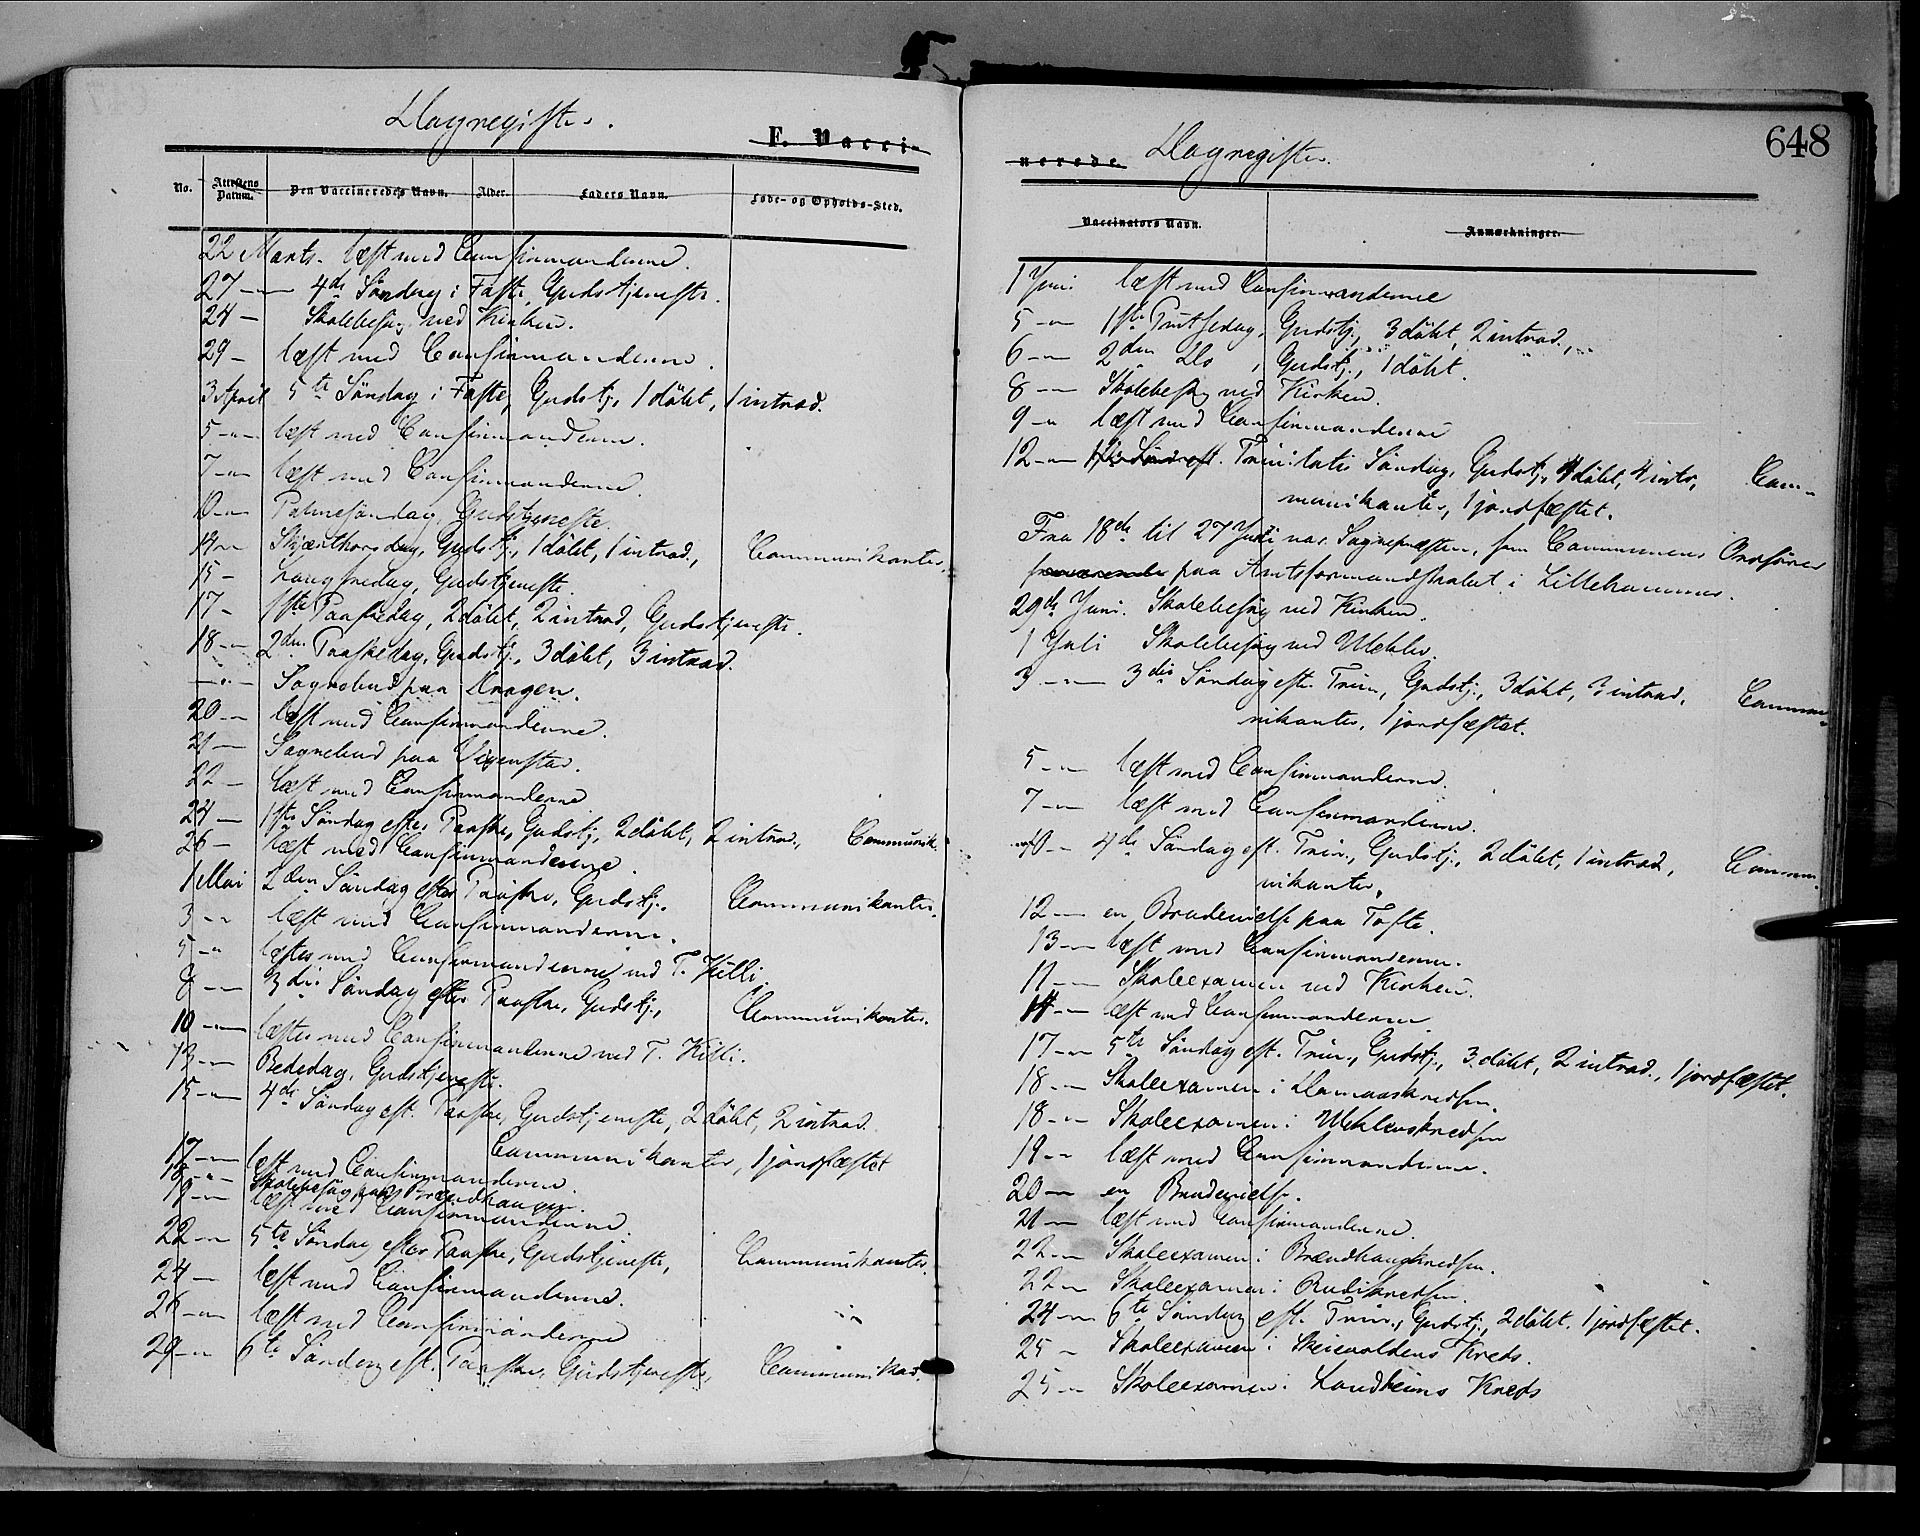 Dagregister.
F. Vacci-
No.
Attestens Datum.
Den Vaccineredes Navn.
Alder.
Faders Navn.
Føde- og Opholds-Sted.
22 Marts. læst med Confirmanderne.
27 — 4de Søndag i Faste, Gudstjeneste.
24 — Skolebesøg ved Kirken.
29 — læst med Confirmanderne.
3 April 5te Søndag i Faste, Gudstj., 1 døbt, 1 introd.
5 — læst med Confirmanderne.
7 — læst med Confirmanderne.
10 — Palmesøndag Gudstjeneste.
14 — Skjærthorsdag, Gudstj., 1 døbt, 1 introd., Communikanter.
15 — Langfredag, Gudstjeneste.
17 — 1ste Paaskedag, 2 døbt, 2 introd, Gudstjeneste.
18 — 2den Paaskedag, Gudstj., 3 døbt, 3 introd.
— " — Sognebud paa Kragen.
20 — læst med Confirmanderne.
21 — Sognebud paa Vigenstad.
22 — læst med Confirmanderne
24 — 1ste Søndag efter Paaske, Gudstj., 2 døbt, 2 introd., Communik.
26 — læst med Confirmanderne.
1 Mai 2den Søndag efter Paaske, Gudstj., Communikanter.
3 — læst med Confirmanderne.
5 — læstes med Confirmanderne ved T. Killi.
8 — 3die Søndag efter Paaske, Gudstj., Communikanter.
10 — læstes med Confirmanderne ved T. Killi.
13 — Bededag, Gudstjeneste.
15 — 4de Søndag eft. Paaske, Gudstjeneste, 2 døbt, 2 introd.
Communikanter, 1 jordfæstet
17 — læst med Confirmanderne.
18 — Skolebesøg paa Brændhaugen.
19 — læst med Confirmanderne.
22 — 5te Søndag efter Paaske, Gudstjeneste, Communikanter.
24 — læst med Confirmanderne.
26 — læst med Confirmanderne
29 — 6te Søndag eft. Paaske, Gudstjeneste, Communikad.
648
nerede. Dagregister.
Vaccinators Navn.
Anmærkninger.
1 Juni læst med Confirmanderne
5 — 1ste Pintsedag, Gudstj., 3 døbt, 2 introd.,
6 — 2den Do, Gudstj., 1 døbt.
8 — Skolebesøg ved Kirken.
9 — læst med Confirmanderne
12 — 1ste Sønd eft. Trinitatis Søndag, Gudstj., 4 døbt, 4 intr., Com-
munikanter, 1 jordfæstet.
Fra 18de til 27 Juni var Sognepræsten, som Communens Ordfører
fraværende paa Amtsformandskabet i Lillehammer.
29de Juni. Skolebesøg ved Kirken.
1 Juli Skolebesøg ved Mehler.
3 — 3die Søndag eft. Trin, Gudstj., 3 døbt, 3 introd, Commu-
nikanter, 1 jordfæstet.
5 — læst med Confirmanderne.
7 — læst med Confirmanderne.
10 — 4de Søndag eft. Trin., Gudstj., 2 døbt, 1 introd, Commu-
nikanter.
12 — en Brudevielse paa Tofte.
13 — læst med Confirmanderne.
11 — Skoleexamen ved Kirken.
14 — læst med Confirmanderne
17 — 5te Søndag eft. Trin., Gudstj., 3 døbt, 2 introd., 1 jordfæstet.
18 — Skoleexamen i kredsen.
18 — Skoleexamen i Mehlenskredsen
19 — læst med Confirmanderne.
20 — en Brudevielse.
21 — læst med Confirmanderne.
22 — Skoleexamen i Brændhaugkredsen.
22 — Skoleexamen i Rudikredsen.
24 — 6te Søndag eft. Trin., Gudstj., 2 døbt. 1 jordfæstet.
25 — Skoleexamen i Skievoldens Kreds.
25 — Skoleexamen i Landheims Kreds